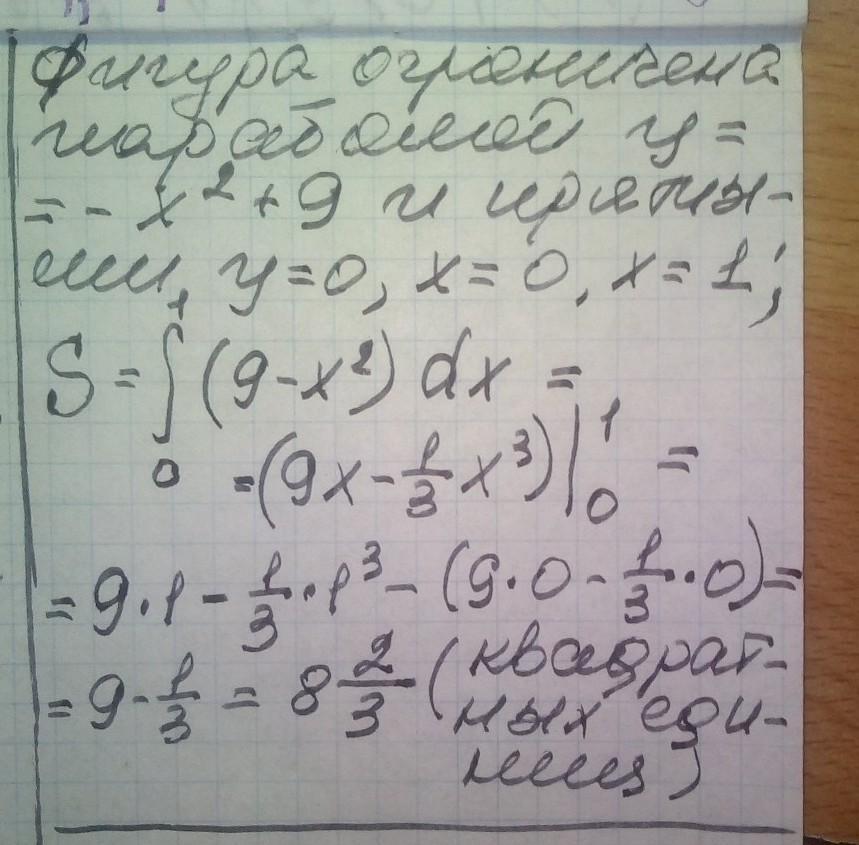 Фигура ограничена
параболой y =
= - x² + 9 и прямы-
ми y = 0, x = 0, x = 1;
S = ∫₀¹ (9 - x²) dx =
= (9x - 1/3 x³) |₀¹ =
= 9·1 - 1/3 · 1³ - (9·0 - 1/3 · 0) =
= 9 - 1/3 = 8 2/3 (квадрат-
ных еди-
ниц)